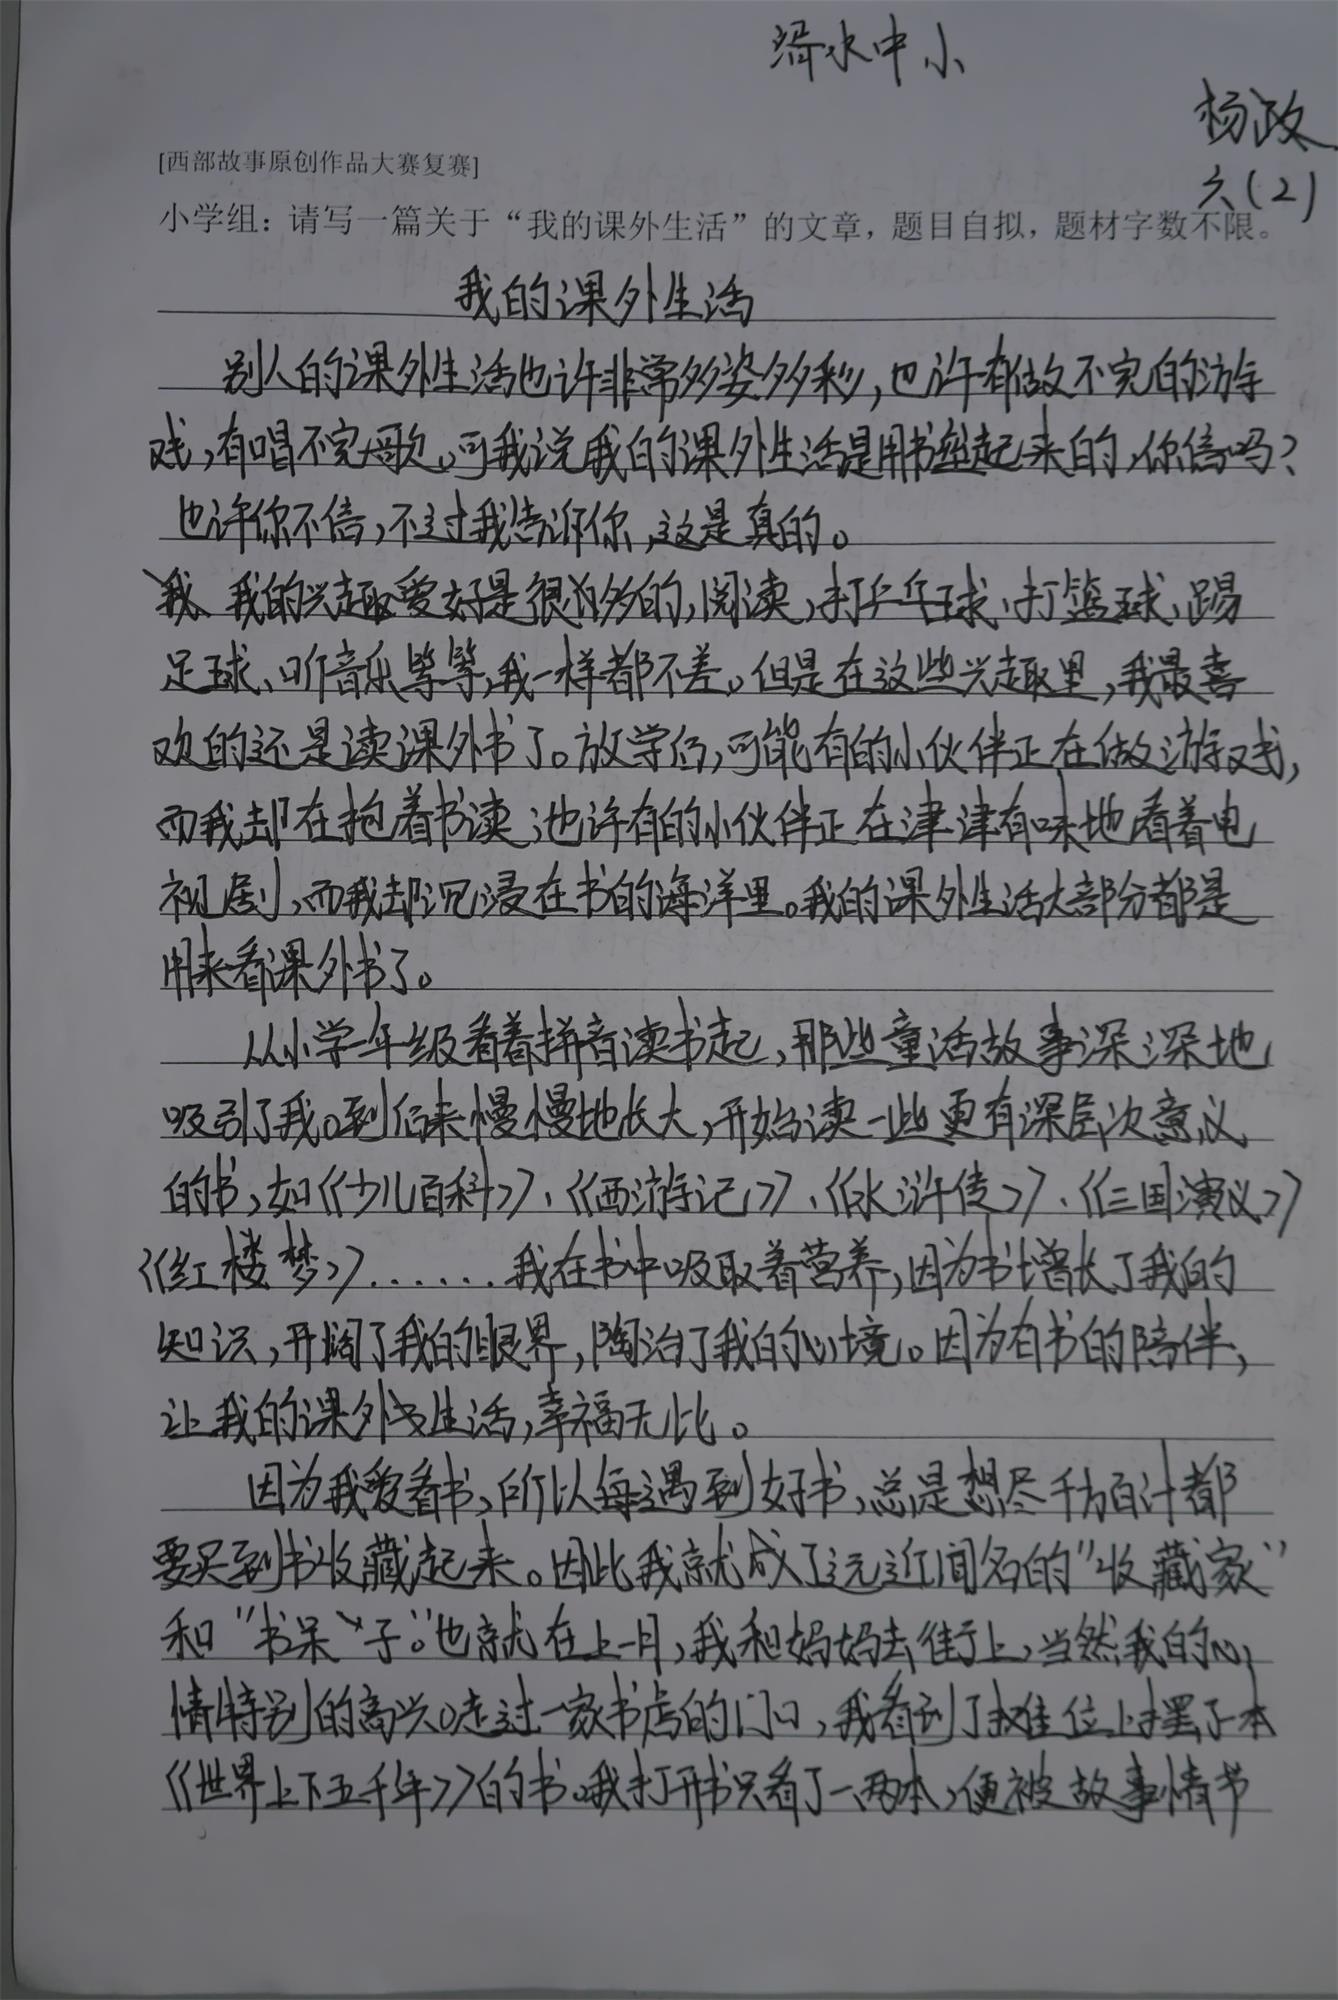 湑水中小
杨政
六(2)
[西部故事原创作品大赛复赛]
小学组：请写一篇关于“我的课外生活”的文章，题目自拟，题材字数不限。
我的课外生活
别人的课外生活也许非常多姿多彩，也许有做不完的游
戏，有唱不完歌。可我说我的课外生活是用书垒起来的，你信吗？
也许你不信，不过我告诉你，这是真的。
我、我的兴趣爱好是很多的，阅读，打乒乓球、打篮球、踢
足球、听音乐等等，我一样都不差。但是在这些兴趣里，我最喜
欢的还是读课外书了。放学后，可能有的小伙伴正在做游戏，
而我却在抱着书读；也许有的小伙伴正在津津有味地看着电
视剧，而我却沉浸在书的海洋里。我的课外生活大部分都是
用来看课外书了。
从小学一年级看着拼音读书起，那些童话故事深深地
吸引了我。到后来慢慢地长大，开始读一些更有深层次意义
的书，如《少儿百科》、《西游记》、《水浒传》、《三国演义》
《红楼梦》......我在书中吸取着营养，因为书增长了我的
知识，开阔了我的眼界，陶冶了我的心境。因为有书的陪伴，
让我的课外生活，幸福无比。
因为我爱看书，所以每遇到好书，总是想尽千方百计都
要买到书收藏起来。因此我就成了远近闻名的“收藏家”
和“书呆子”。也就在上一月，我和妈妈去街上，当然我的心
情特别的高兴。走过一家书店的门口，我看到了摊位上摆了本
《世界上下五千年》的书。我打开书只看了一两本，便被故事情节